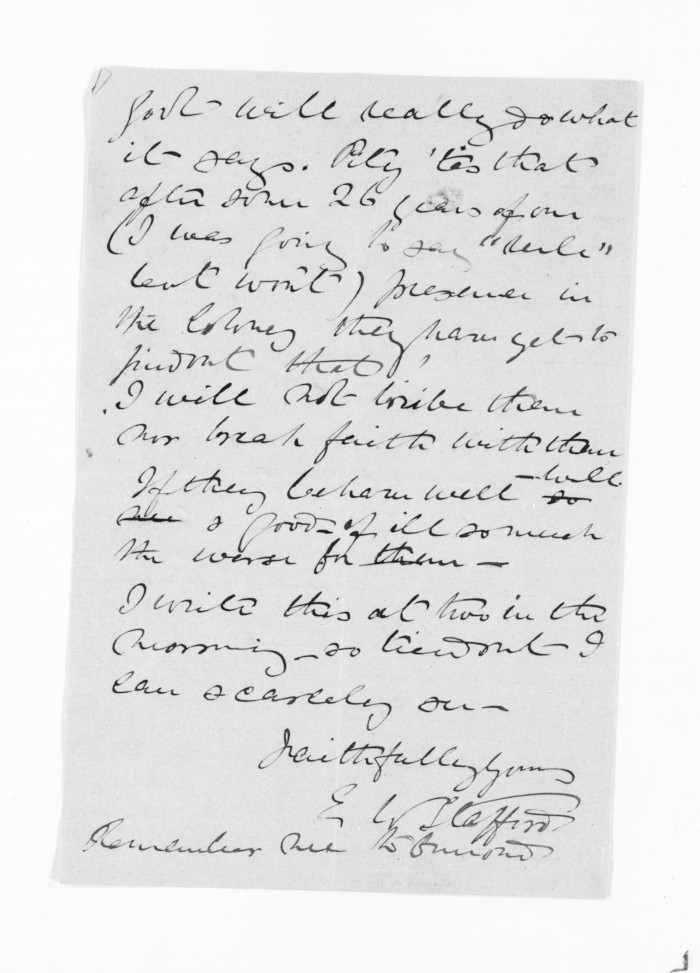 Govt will really do what
it says. Pity 'tis that
after some 26 years of our
(I was going to say "rule"
but won't) presence in
the Colony they have yet to
find out that!
I will not bribe them
nor break faith with them
If they behave well - well
& good - if ill so much
the worse for them -
I write this at two in the
morning - so tired out I
can scarcely see -
Faithfully yours
E W Stafford
Remember me to Ormond